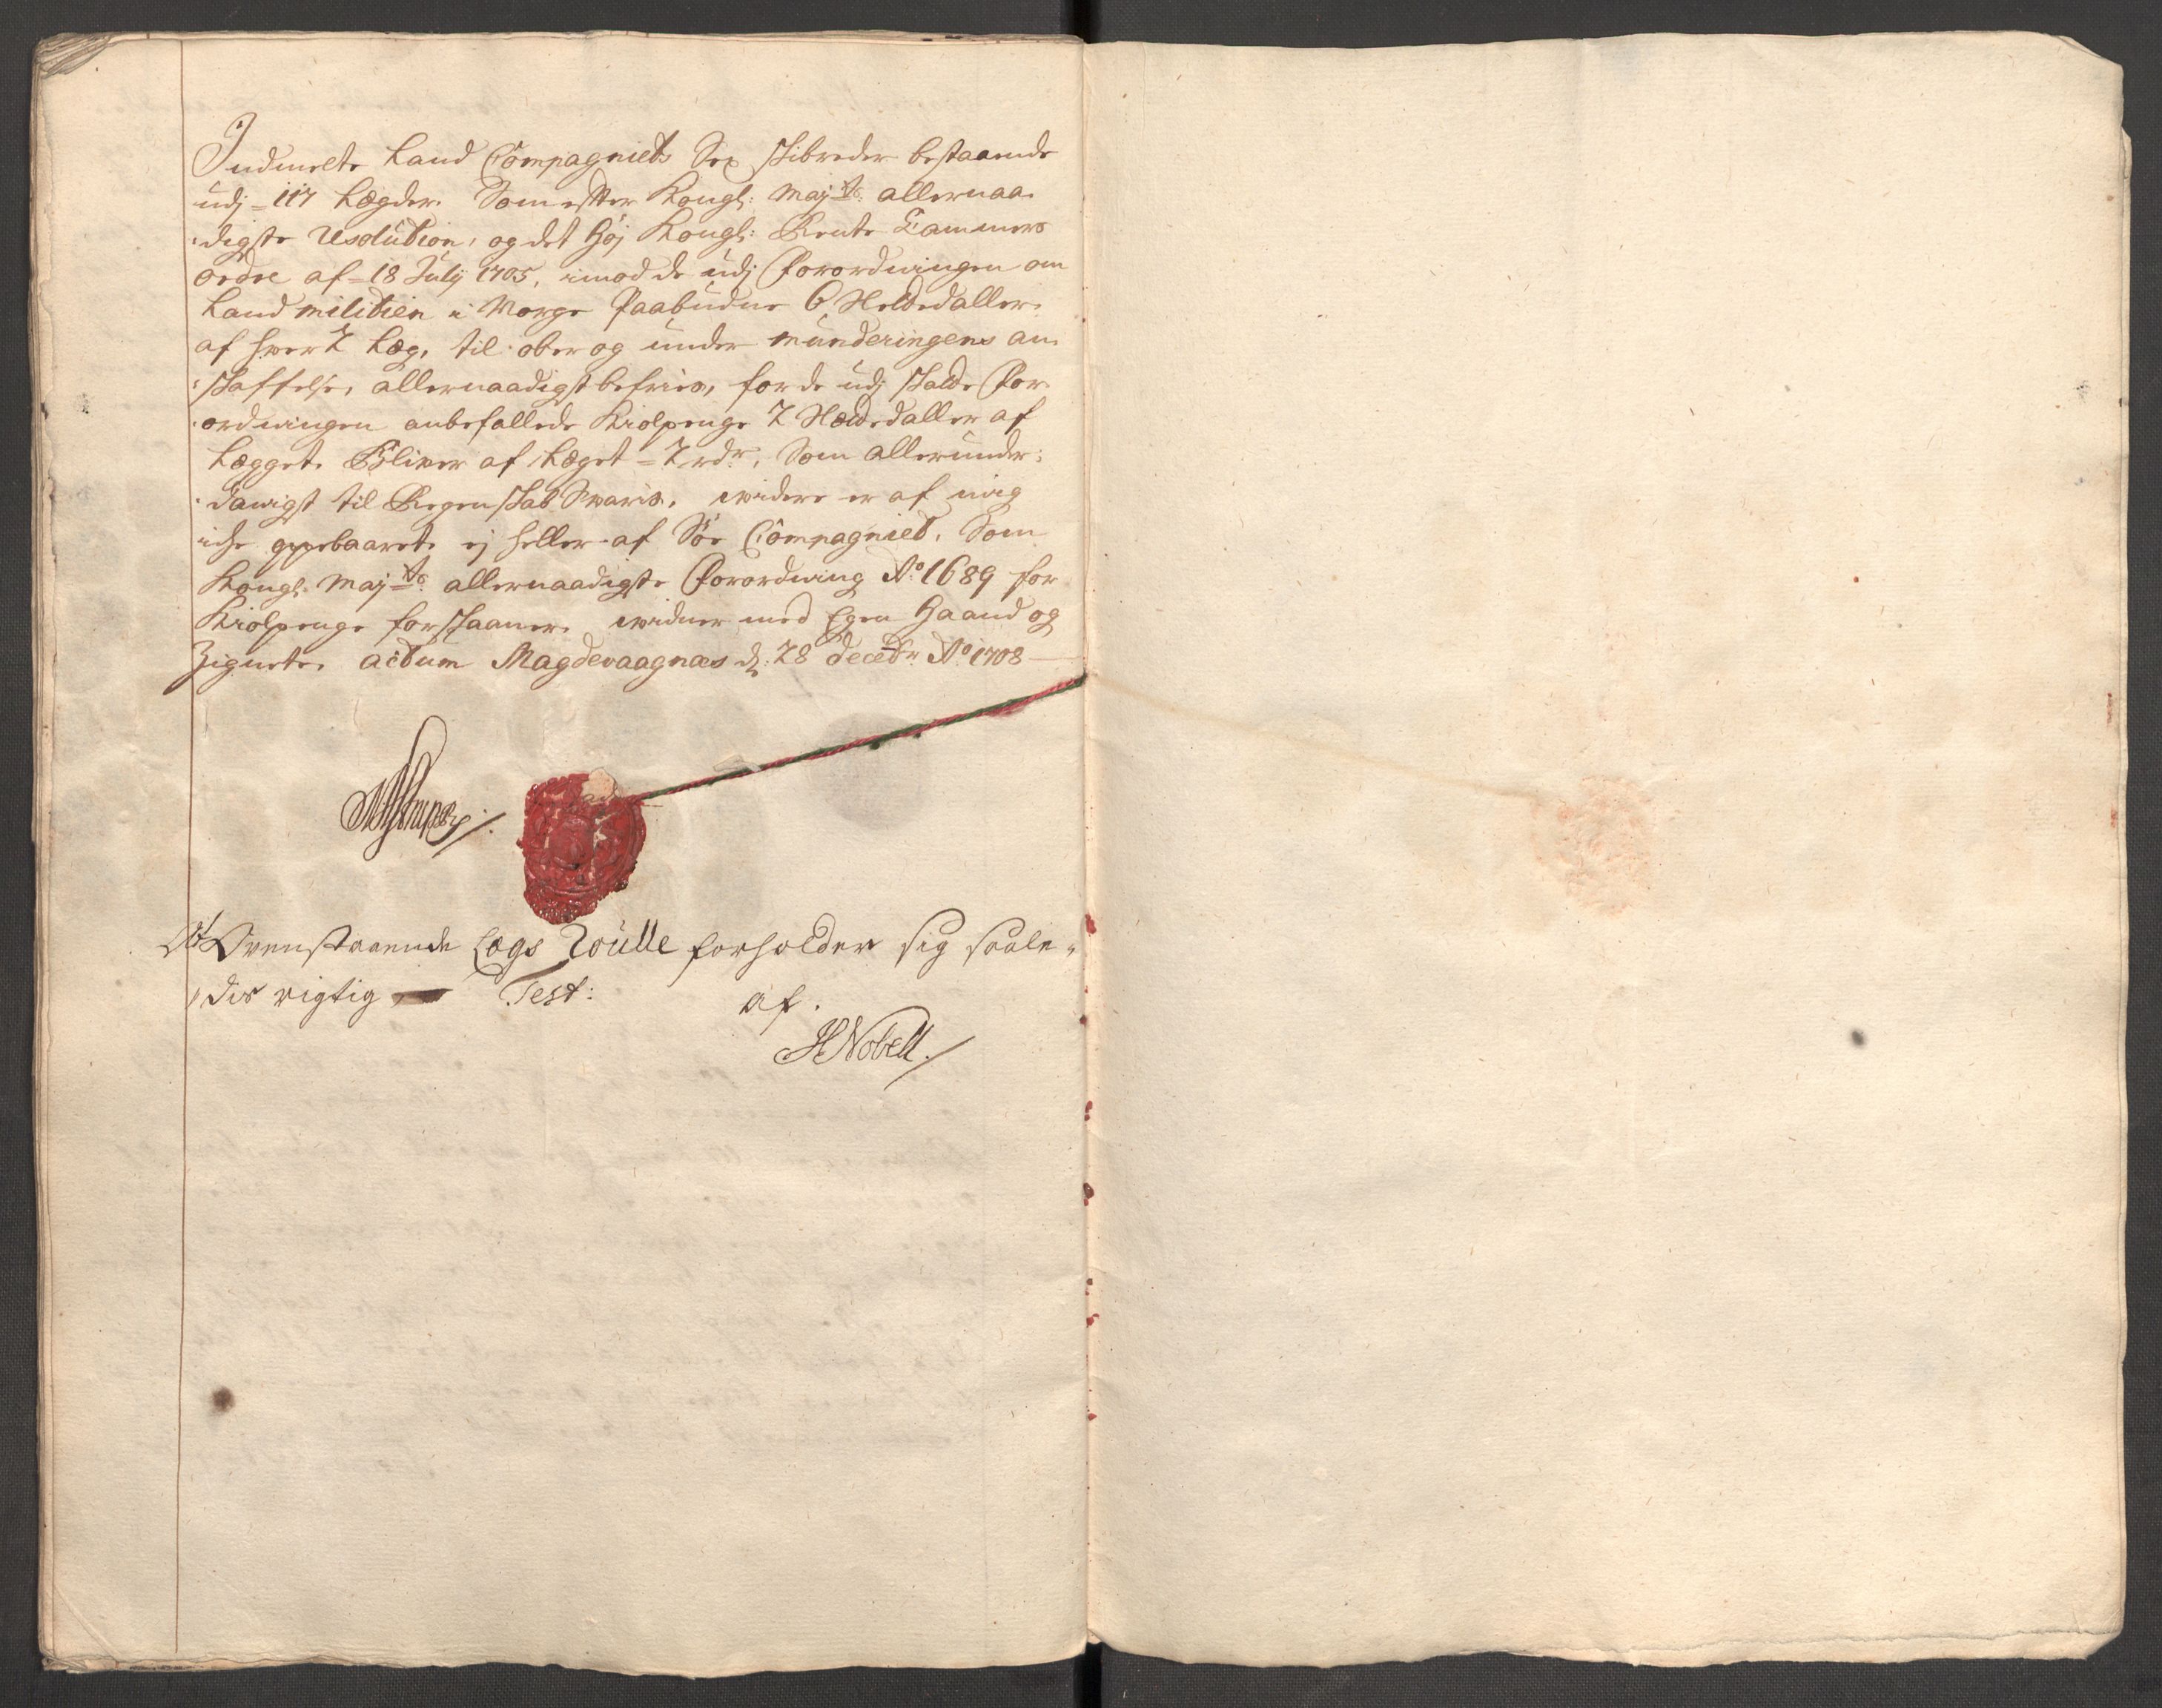 Indmelte Land Compagniets Sex skibreder bestaaende
udj = 117 Lægder. Som efter Kongl: Maj:ts allernaa-
digste Resolution, og det høj Kongl: Rente Cammers
ordre af = 18 July 1705, imod de udj Forordningen om
Land militien i Norge Paabudne 6 Sletdaller
af hver 2 Læg, til ober og under munderingens an-
skaffelse, allernaadigst befries, for de udj samme For-
ordningen anbefallede Kiolpenge 2 Sletdaller af
Lægget. Bliver af Læget = 2 rdr, Som allerunder-
danigst til Regenskab Svaris, widere er af mig
iche oppebaaret, ej heller af Söe Compagniet, Som
Kongl: Maj:ts allernaadigste Forordning Ao 1689 for
Kiolpenge forskaaner. widner med Egen Haand og
Zignete. actum Magdevaagnæs d: 28 decebr Ao 1708
At Ovenstaaende Lægs Roulle forholder sig saale-
dis rigtig Test: af.
HNobell